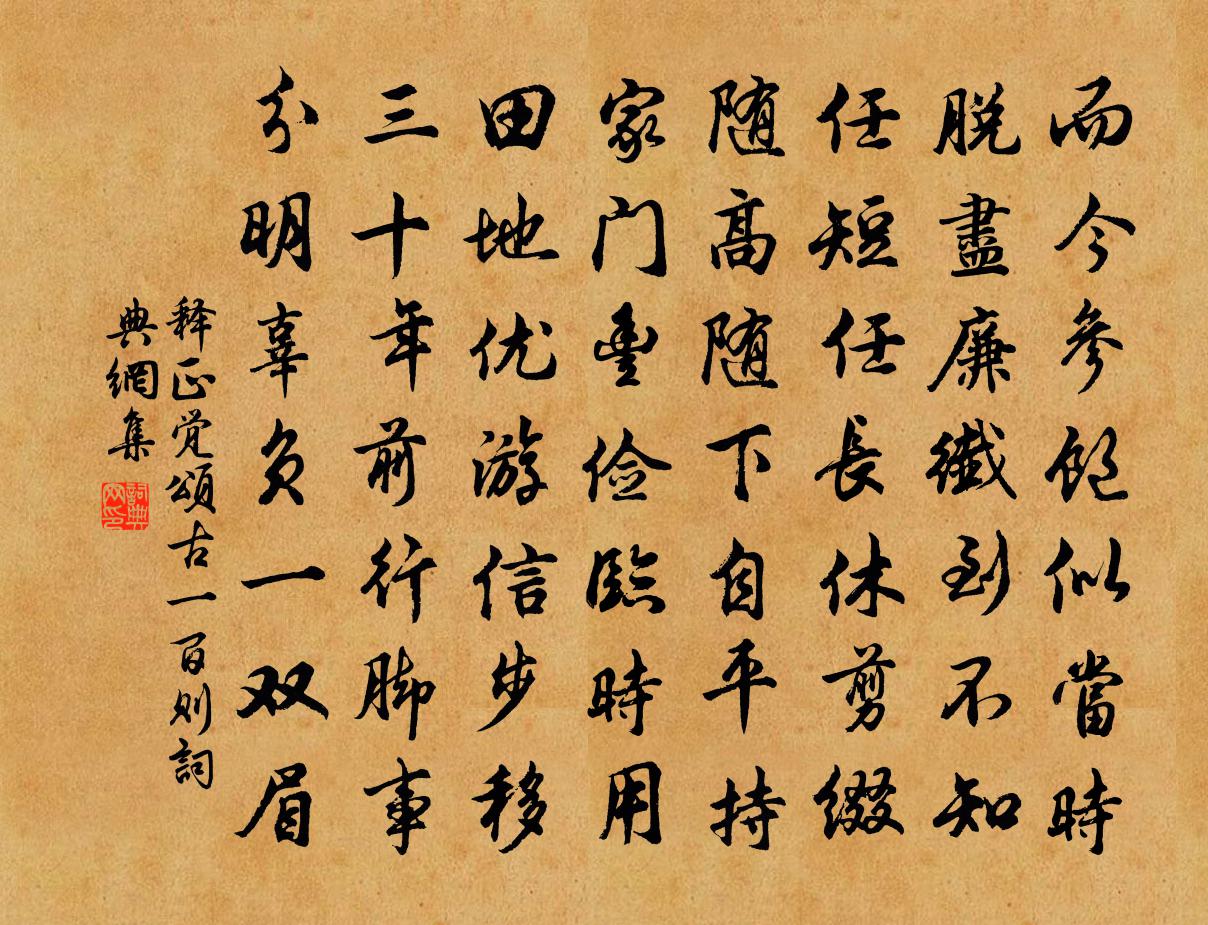 而今參飽似當時
脱盡廉纖到不知
任短任長休剪綴
随高随下自平持
家门豊俭臨時用
田地优游信步移
三十年前行脚事
分明辜负一双眉
释正觉頌古一百则詞
典網集
詞典网印